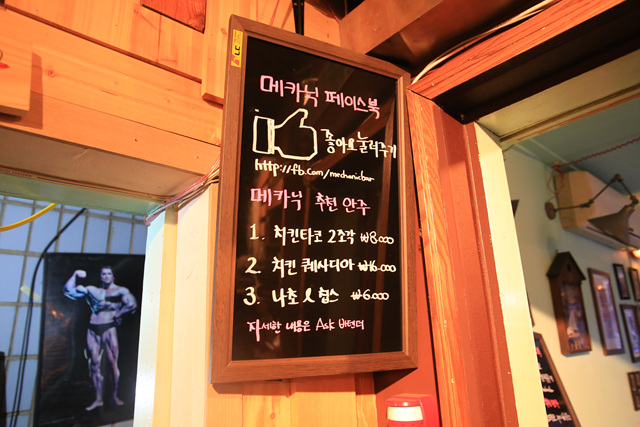 메카닉 페이스북
좋아요 눌러주기
http://fb.com/mechanicbar
메카닉 추천 안주
1. 치킨타코 2조각 ₩8.000
2. 치킨 퀘사디아 ₩16.000
3. 나초 & 칩스 ₩6.000
자세한 내용은 Ask 바텐더